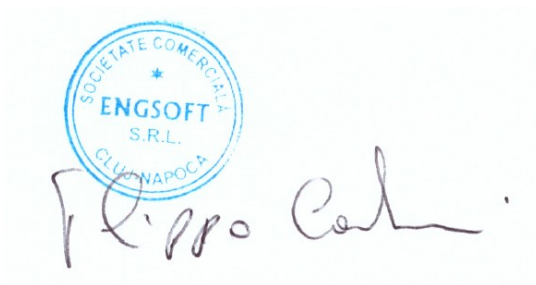 SOCIETATE COMERCIALĂ
ENGSOFT
S.R.L.
CLUJ-NAPOCA
Filippo